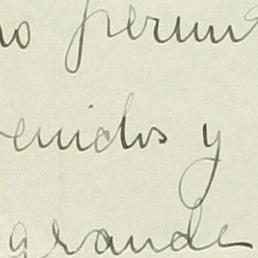 no perm
enidos y
grande